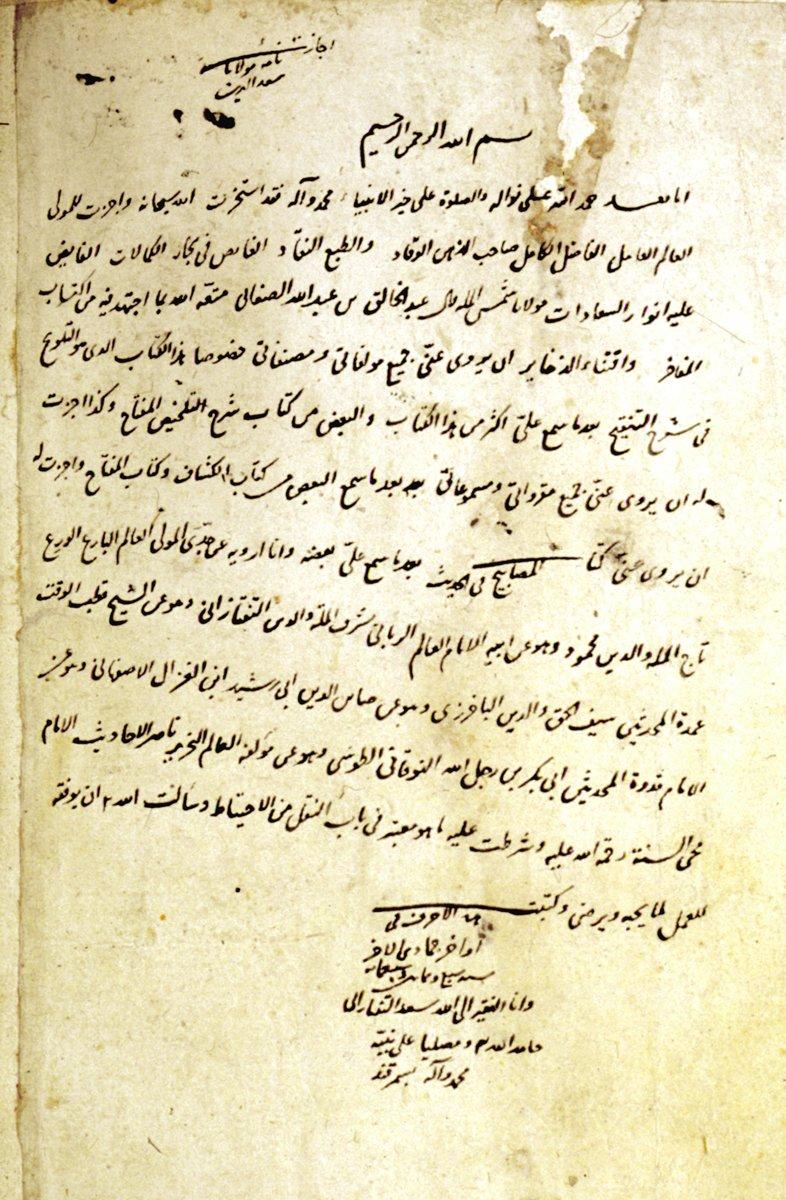 اجازت
نامهٔ مولانا
سعد الدین
بسم الله الرحمن الرحیم
اما بعد حمد الله علی نواله والصلوة علی خیر الانبیاء محمد وآله فقد استخرت الله سبحانه واجزت للمولی
العالم العامل الفاضل الکامل صاحب الذهن الوقاد والطبع النقاد الغایص فی بحار الکمالات الفایض
علیه انوار السعادات مولانا شمس المله عبد الخالق بن عبد الله متعه الله بما اجتهد فیه من اکتساب
المفاخر واقتناء الذخایر ان یروی عنی جمیع مولفاتی ومصنفاتی خصوصا هذا الکتاب الذی هو التلویح
فی شرح التنقیح بعد ما سمع علی اکثر من هذا الکتاب والبعض من کتاب شرح التلخیص المفتاح وکذا اجزت
له ان یروی عنی جمیع مقرواتی ومسموعاتی بعد ما سمع البعض من کتاب الکشاف وکتاب المفتاح واجزت له
ان یروی عنی کتاب المصابیح فی الحدیث بعد ما سمع علی بعضه وانا ارویه عن جدی المولی العالم البارع الورع
تاج المله والدین محمود وهو عن ابیه الامام العالم الربانی شرف المله والدین التفتازانی وهو عن الشیخ قطب الوقت
عمدة المحدثین سیف الحق والدین الباخرزی وهو عن الدین ابی رشید ابن الغزال الاصفهانی وهو عن
الامام قدوة المحدثین ابی بکر بن رجل الله النوقانی الطوسی وهو عن مولفه العالم النحریر ناصر الاحادیث الامام
محی السنة رحمة الله علیه وشرطت علیه ما هو معتبر فی باب النقل من الاحتیاط وسألت الله ان یوفقه
للعمل لما یحبه ویرضی وکتبت
هذه الاحرف فی
اواخر جمادی الاخر
سنه سبع وثمانین وسبعمائه
وانا الفقیر الی الله سعد التفتازانی
حامدا لله ومصلیا علی نبیه
محمد وآله بسمرقند